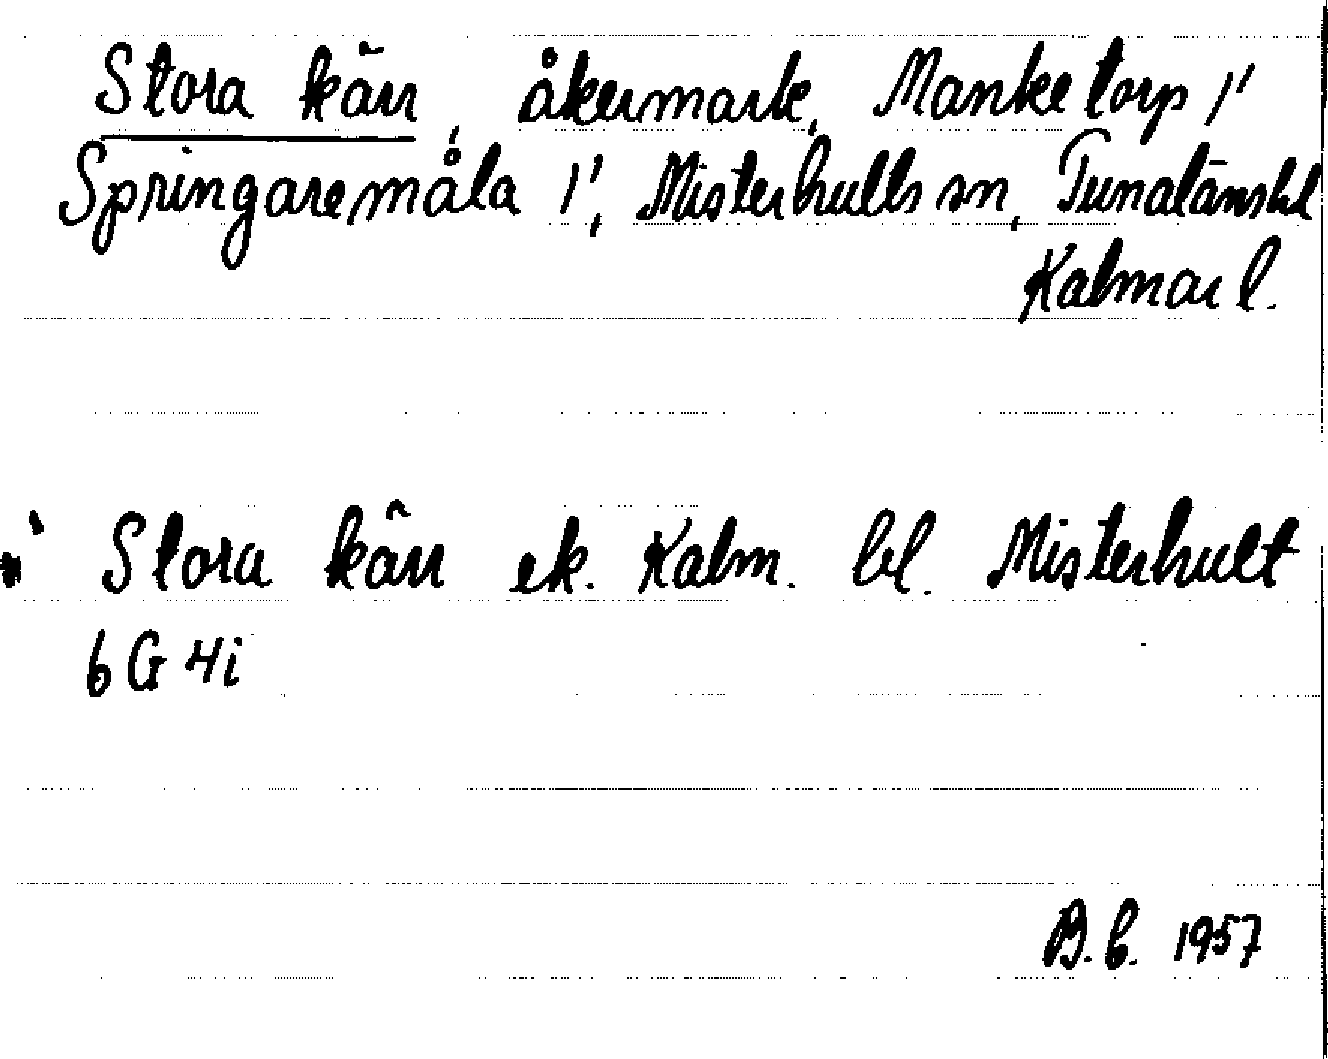 Stora kärr, åkermark, Manketorp 1'
Springaremåla 1', Misterhults sn, Tunalänshd
Kalmar l.
Stora kärr ek. Kalm. bl. Misterhult
6 G 4i
B.b. 1957